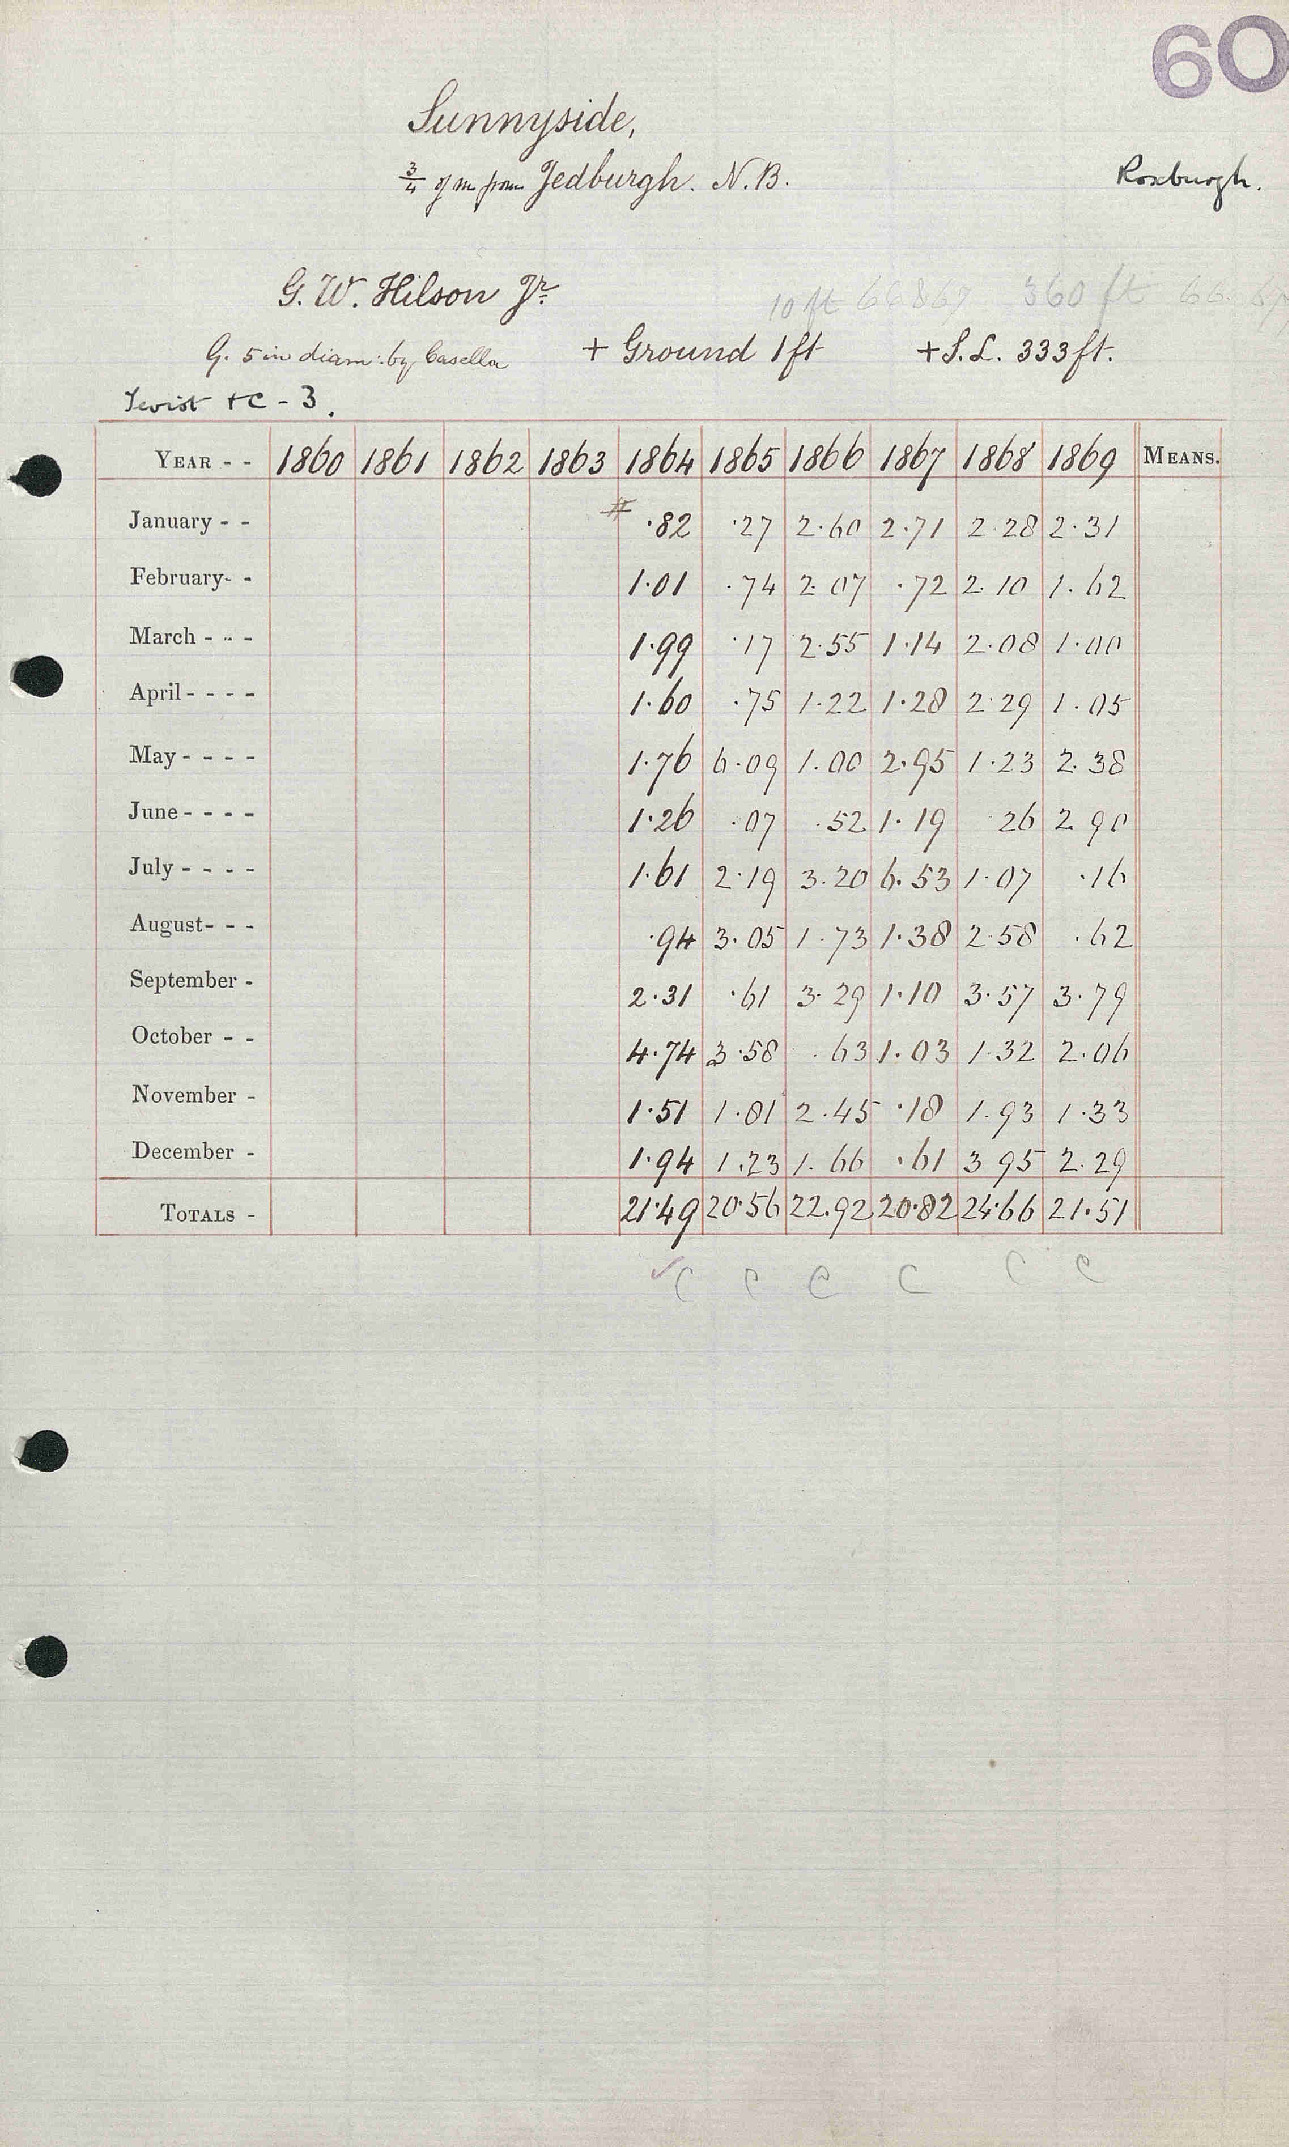 60
Sunnyside,
3/4 of m from Jedburgh. N.B.
Roxburgh.
G. W. Hilson Jr.
10 ft 66867 360 ft 66.67
G. 5 in diam: by Casella + Ground 1ft + S.L. 333ft.
Teviot + C - 3.
YEAR - - 1860 1861 1862 1863 1864 1865 1866 1867 1868 1869 MEANS.
January - - # ·82 ·27 2·60 2·71 2·28 2·31
February- - 1·01 ·74 2·07 ·72 2·10 1·62
March - - - 1·99 ·17 2·55 1·14 2·08 1·00
April - - - - 1·60 ·75 1·22 1·28 2·29 1·05
May - - - - 1·76 6·09 1·00 2·95 1·23 2·38
June - - - - 1·26 ·07 ·52 1·19 ·26 2 90
July - - - - 1·61 2·19 3·20 6·53 1·07 ·16
August- - - ·94 3·05 1·73 1·38 2·58 ·62
September - 2·31 ·61 3·29 1·10 3·57 3·79
October - - 4·74 3·58 ·63 1·03 1·32 2·06
November - 1·51 1·81 2·45 ·18 1·93 1·33
December - 1·94 1·23 1·66 ·61 3 95 2·29
TOTALS - 21·49 20·56 22·92 20·82 24·66 21·51
✓C C C C C C